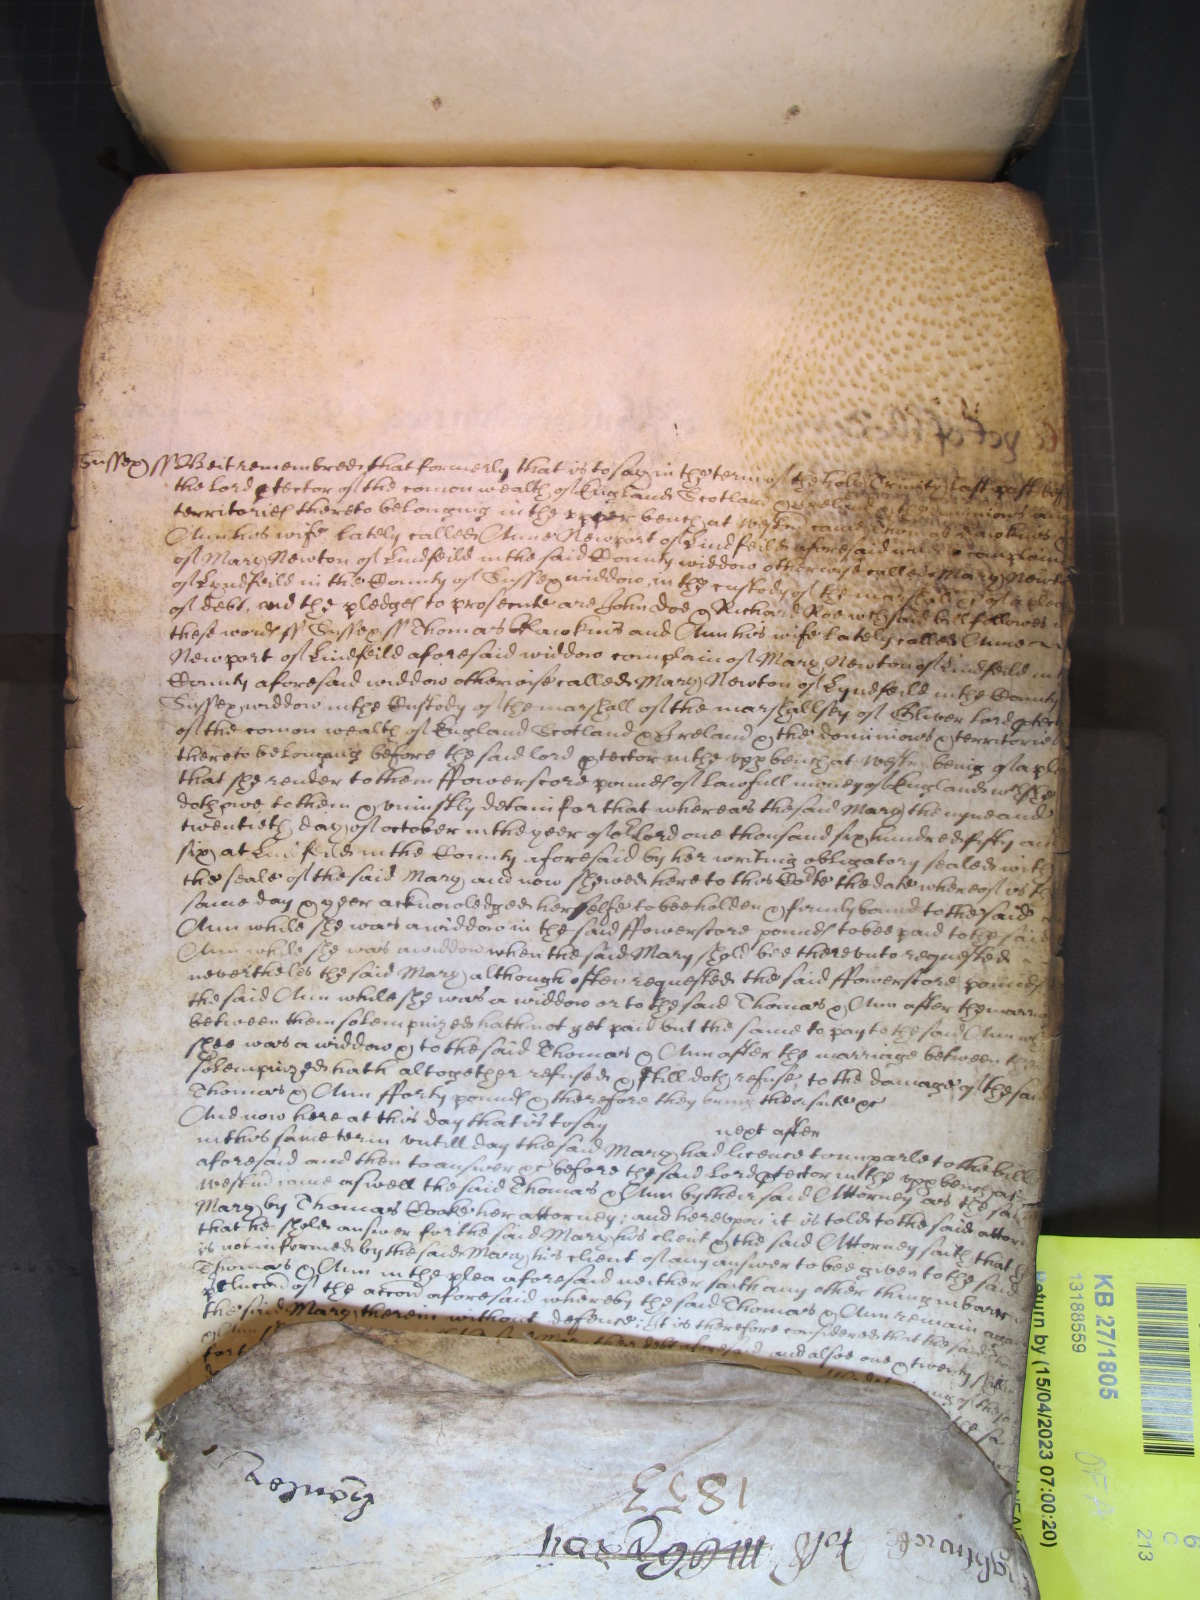 Sussex ss Be it remembred that formerly that is to say in the terme of the holy Trinity last past before
the Lord ptector of the comon wealth of England Scotland & Ireland & the dominions and
territories thereto belonging in the upper bench at Westmr came Thomas Hawkins &
Ann his wife lately called Anne Newport of Lindfeild aforesaid widdow complained
of Mary Newton of Lindfeild in the said County widdow otherwise called Mary Newton
of Lyndfeild in the County of Sussex widdow in the custody of the marshall &c of a plea
of debt, and the pledges to prosecute are John Doe & Richard Roe wch said bill followes in
these words ss Sussex ss Thomas Hawkins and Ann his wife lately called Anne
Newport of Lindfeild aforesaid widdow complain of Mary Newton of Lindfeild in the
County aforesaid widdow otherwise called Mary Newton of Lyndfeild in the County
Sussex widdow in the Custody of the marshall of the marshallsey of Oliver Lord ptector
of the comon wealth of England Scotland & Ireland & the dominions & territories
thereto belonging before the said lord ptector in the upp bench at Westmr being of a plea
that she render to them ffowerscore pounds of lawfull money of England wch she
doth owe to them & uniustly detain for that whereas the said Mary the nyne and
twentieth day of october in the yeer of or Lord one thousand six hundred fifty and
six at Lindfeild in the County aforesaid by her writing obligatory sealed with
the seale of the said Mary and now shewed here to this Corte the date whereof is the
same day & yeer acknowledged her selfe to bee holden & firmly bound to the said
Ann while she was a widdow in the said ffowerscore pounds to bee paid to the said
Ann while she was a widdow when the said Mary shold bee thereunto requested
neverthelés the said Mary although often requested the said ffowerscore pounds
the said Ann while she was a widdow or to the said Thomas & Ann after the marriage
between them solempnized hath not yet paid but the same to pay to the said Ann while
shee was a widdow & to the said Thomas & Ann after the marriage between them
solempnized hath altogether refused & still doth refuse, to the damage of the said
Thomas & Ann fforty pounds & therefore they bring their sute &c
And now here at this day that is to say next after
in this same term untill day the said Mary had licence to imparle to the bill
aforesaid and then to answer &c before the said Lord ptector in the upp bench at
Westmr came aswell the said Thomas & Ann by their said Attorney as the said
Mary by Thomas Cooke her attorney; and hereupon it is told to the said attorney
that he shold answer for the said Mary his client & the said Attorney saith that he
is not informed by the said Mary his client of any answer to bee given to the said
Thomas & Ann in the plea aforesaid neither saith any other thing in barre or
pclucon of the accon aforesaid whereby the said Thomas & Ann remain against
the said Mary therein without defence; It is therefore considered that the said Thomas
& Ann the said Mary their debt aforesaid and alsoe one & twenty
1853
KB 27/1805
13188559
Return by (15/04/2023 07:00:20)
213